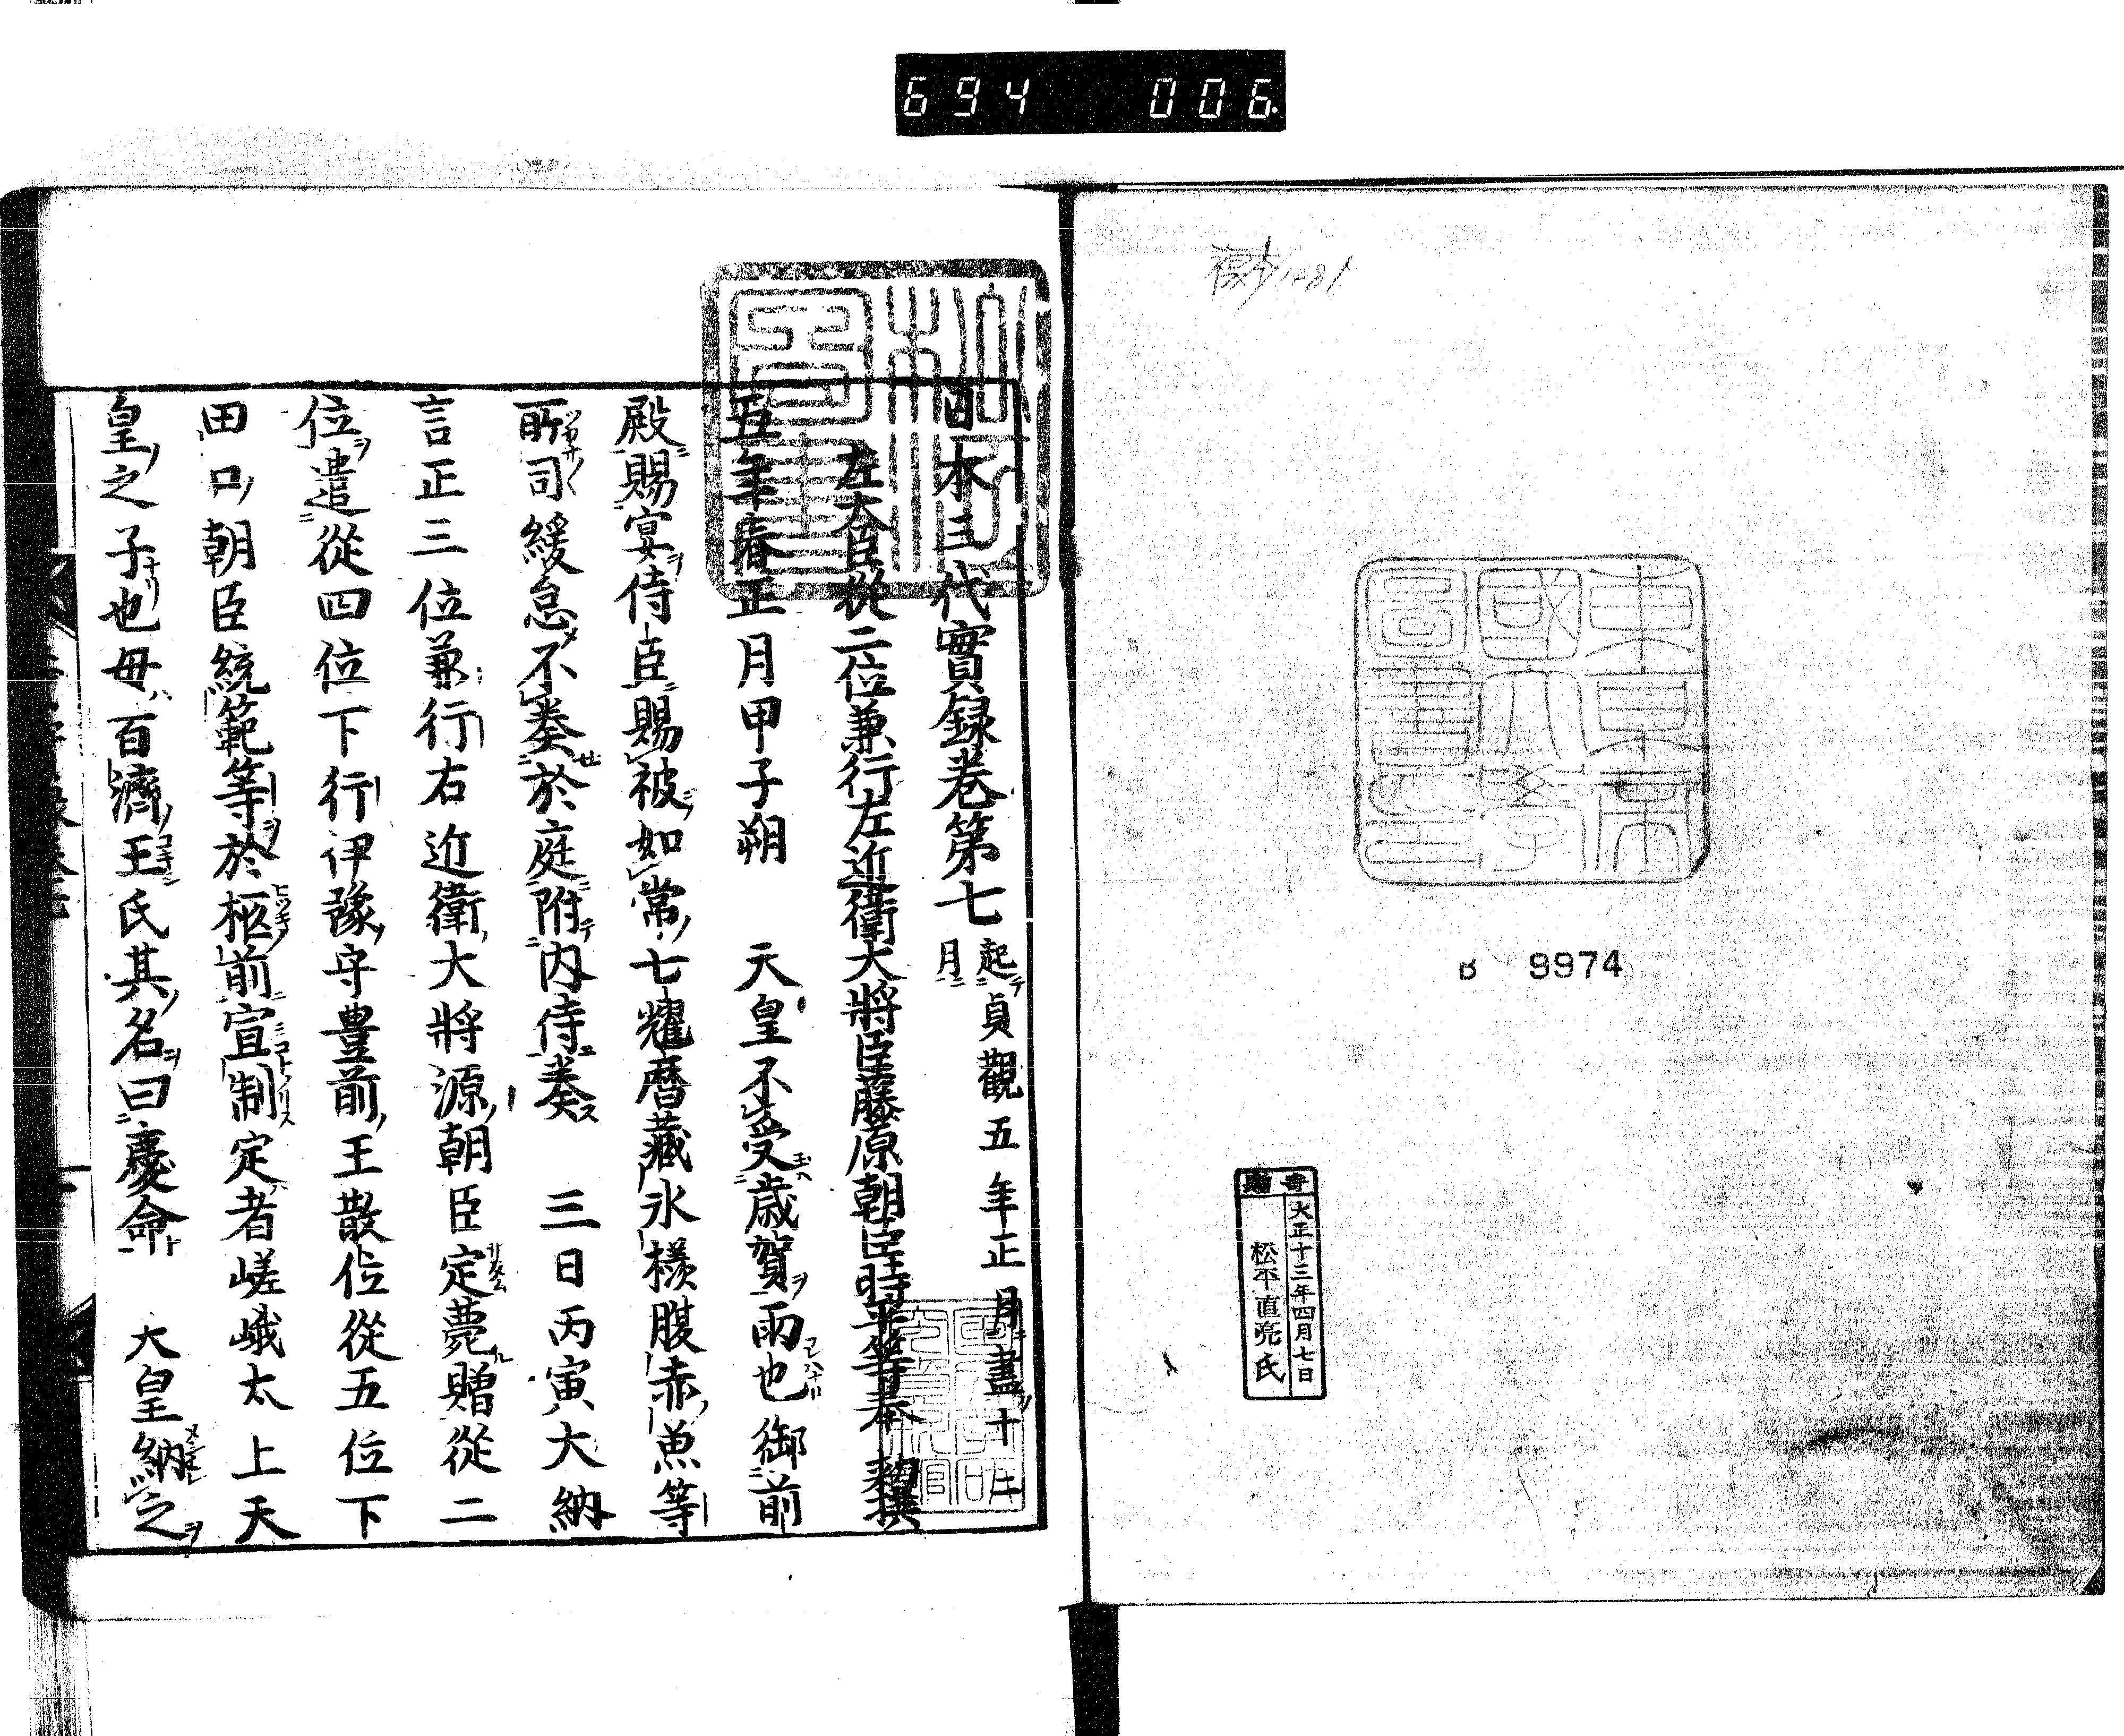 694 006.
東京帝
國大學
圖書之
B 9974
寄贈
大正十三年四月七日
松平直亮氏
日本三代實録巻第七 起貞觀五年正月盡十二月
左大臣從二位兼行左近衛大將臣藤原朝臣時平等奉 勅撰
五年春正月甲子朔 天皇不受歳賀雨也御前
殿賜宴侍臣賜被如常七耀暦藏氷様腹赤魚等
所司緩怠不奏於庭附内侍奏 三日丙寅大納
言正三位兼行右近衛大將源朝臣定薨贈從二
位遣從四位下行伊豫守豊前王散位從五位下
田口朝臣統範等於柩前宣制定者嵯峨太上天
皇之子也母百濟王氏其名曰慶命 大皇納之